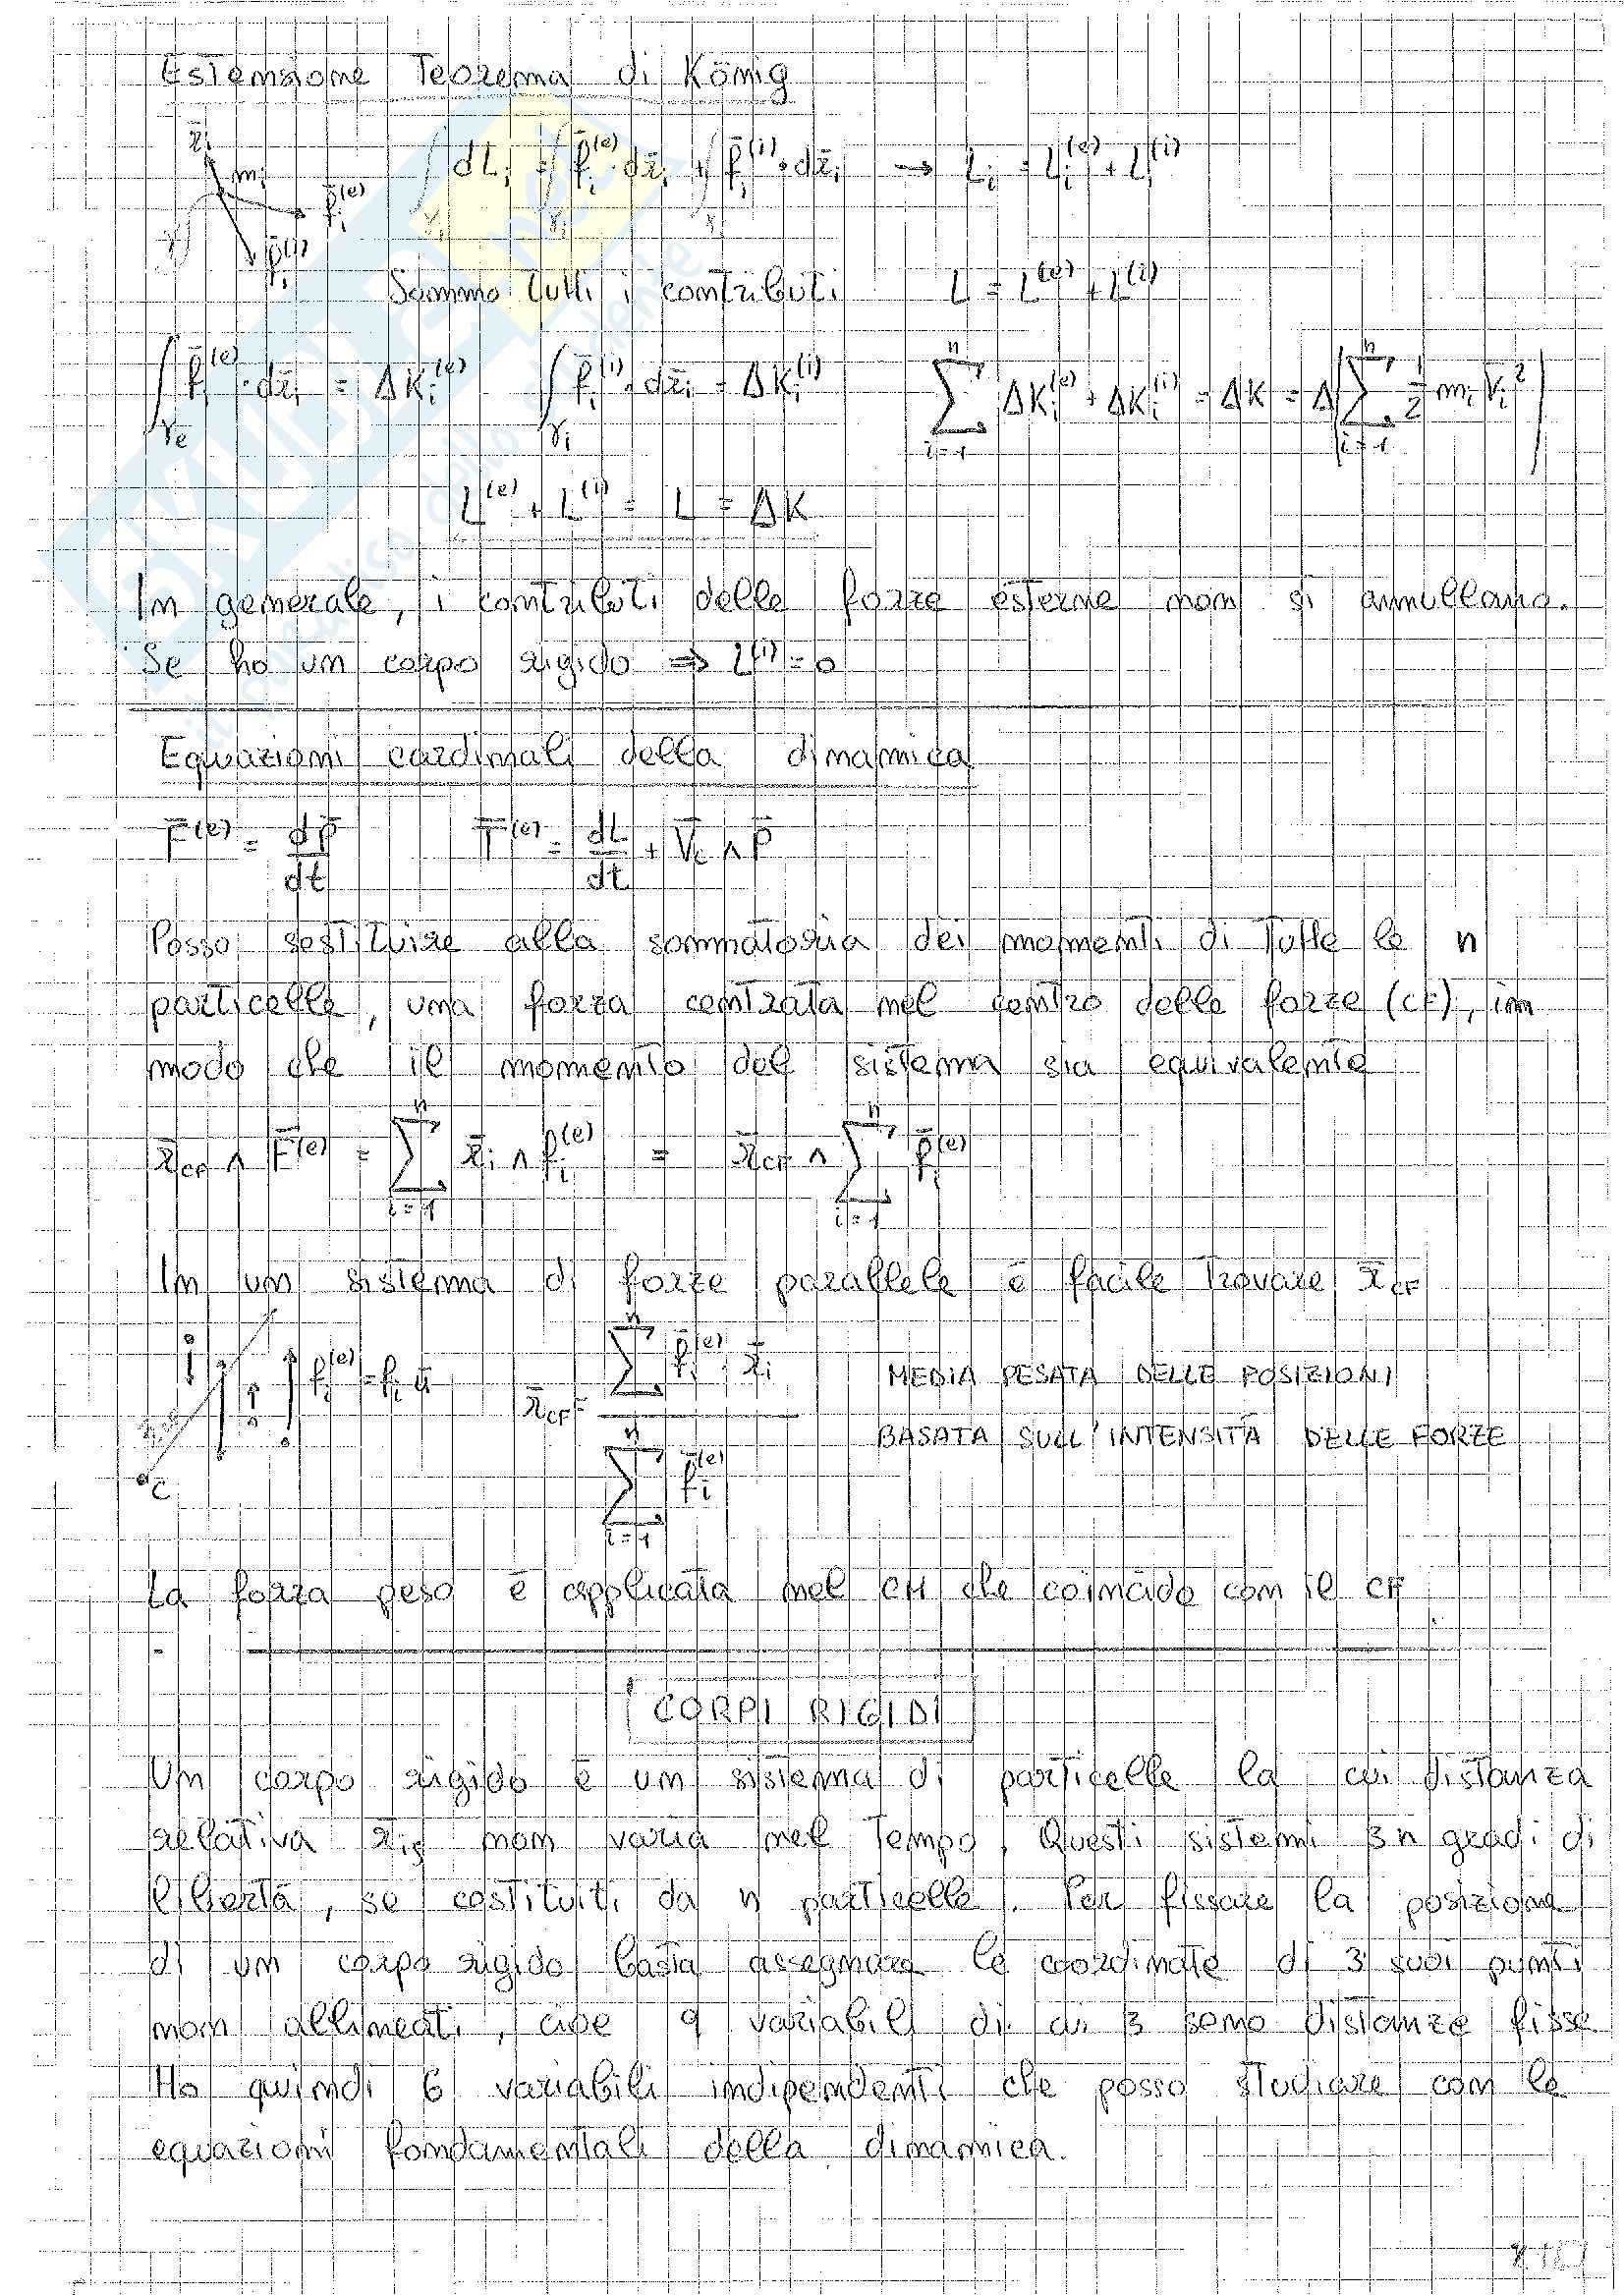 Estensione Teorema di König
z̄i mi f̄i(e)
∫γi dLi = ∫γi f̄i(e) · dr̄i + ∫γi f̄i(i) · dr̄i → Li = Li(e) + Li(i)
γi f̄i(i)
Sommo tutti i contributi L = L(e) + L(i)
∫γe f̄i(e) · dr̄i = ΔKi(e) ∫γi f̄i(i) · dr̄i = ΔKi(i) Σ i=1 n ΔKi(e) + ΔKi(i) = ΔK = Δ(Σ i=1 n 1/2 mi vi²)
L(e) + L(i) = L = ΔK
In generale, i contributi delle forze esterne non si annullano.
Se ho un corpo rigido ⇒ L(i) = 0
Equazioni cardinali della dinamica
F̄(e) = dp̄/dt T̄(e) = dL/dt + V̄c ∧ P̄
Posso sostituire alla sommatoria dei momenti di tutte le n
particelle, una forza centrata nel centro delle forze (CF), in
modo che il momento del sistema sia equivalente
r̄CF ∧ F̄(e) = Σ i=1 n r̄i ∧ f̄i(e) = r̄CF ∧ Σ i=1 n f̄i(e)
In un sistema di forze parallele è facile trovare r̄CF
f̄i(e) = fi ū r̄CF = Σ i=1 n f̄i(e) · r̄i / Σ i=1 n f̄i(e) MEDIA PESATA DELLE POSIZIONI
BASATA SULL'INTENSITÀ DELLE FORZE
C
La forza peso è applicata nel CM che coincide con il CF
CORPI RIGIDI
Un corpo rigido è un sistema di particelle la cui distanza
relativa r̄ij non varia nel tempo. Questi sistemi 3n gradi di
libertà, se costituiti da n particelle. Per fissare la posizione
di un corpo rigido basta assegnare le coordinate di 3 suoi punti
non allineati, cioè 9 variabili di cui 3 sono distanze fisse
Ho quindi 6 variabili indipendenti che posso studiare con le
equazioni fondamentali della dinamica.